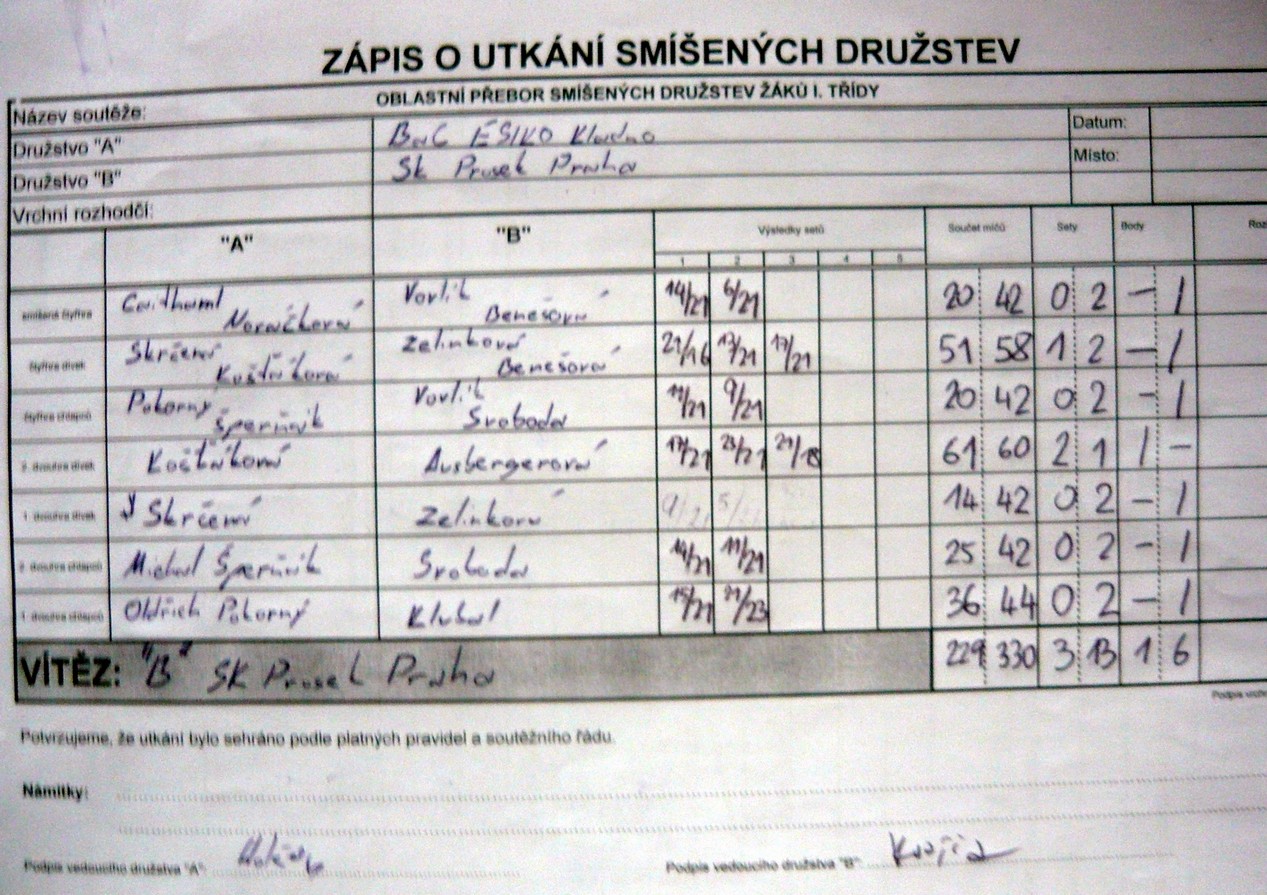 ZÁPIS O UTKÁNÍ SMÍŠENÝCH DRUŽSTEV
Název soutěže: OBLASTNÍ PŘEBOR SMÍŠENÝCH DRUŽSTEV ŽÁKŮ I. TŘÍDY
Družstvo "A" BaC ÉSIKO Kladno Datum:
Družstvo "B" Sk Prosek Praha Místo:
Vrchní rozhodčí:
"A" "B" Výsledky setů Součet míčů Sety Body
1 2 3 4 5
smíšená čtyřhra Nováčková Vovlik Benešová 14/21 6/21 20 42 0 2 - 1
čtyřhra dívek Skrčená Koštiková Zelinková Benešová 21/16 17/21 51 58 1 2 - 1
čtyřhra chlapců Pokorný Šperňák Vovlik Svoboda 11/21 9/21 20 42 0 2 - 1
2. dvouhra dívek Ausbergerová 17/21 23/21 21/18 61 60 2 1 1 -
1. dvouhra dívek Skrčená Zelinková 9/21 14 42 0 2 - 1
2. dvouhra chlapců Michal Šperňák Svoboda 14/21 11/21 25 42 0 2 - 1
1. dvouhra chlapců Oldřich Pokorný Klubal 15/21 21/23 36 44 0 2 - 1
VÍTĚZ: "B" SK Prosek Praha 229 330 3 13 1 6
Potvrzujeme, že utkání bylo sehráno podle platných pravidel a soutěžního řádu.
Námitky:
Podpis vedoucího družstva "A": Podpis vedoucího družstva "B":